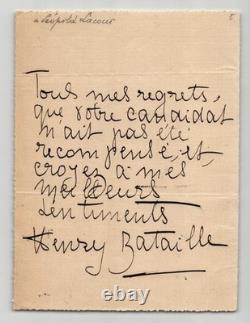 à Léopold Lacour
Tous mes regrets,
que votre candidat
n'ait pas été
recompensé, et,
croyez à mes
meilleurs
sentiments
Henry Bataille
ebay